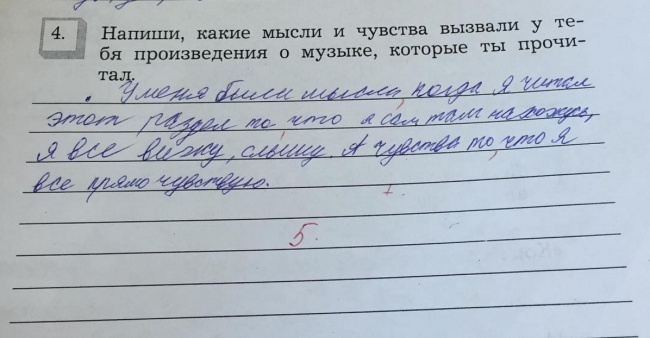 4.
Напиши, какие мысли и чувства вызвали у те-
бя произведения о музыке, которые ты прочи-
тал.
У меня были мысли, когда я читал
этот раздел то, что я сам там нахожусь,
я все вижу, слышу. А чувства то, что я
все прямо чувствую.
5.